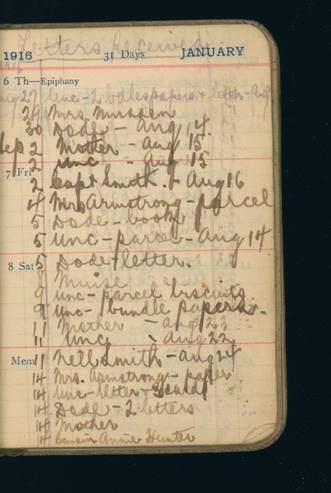 Letters Received
1916 31 Days JANUARY
6 Th—Epiphany
Aug 27 Unc-2 bales papers & letter-Aug
29 Mrs. Mudden
30 Dode - Aug 14.
Sep 2 Mother - Aug 15
2 Unc - Aug 15
7 Fri
2 Capt Smith. - Aug 16
4 Mrs Armstrong-parcel
5 Dode - book
5 Unc-parcel-Aug 14
8 Sat 5 Dode-letter.
8
9 Unc-parcel biscuits
9 Unc-bundle papers.
11 Mother - Aug 23
11 Unc Aug 22
Mem 11 Nell Smith-Aug 24
14 Mrs. Armstrong-paper
14 Unc-letter &
14 Dode-2 letters
14 Mother
14 Cousin Annie Hunter